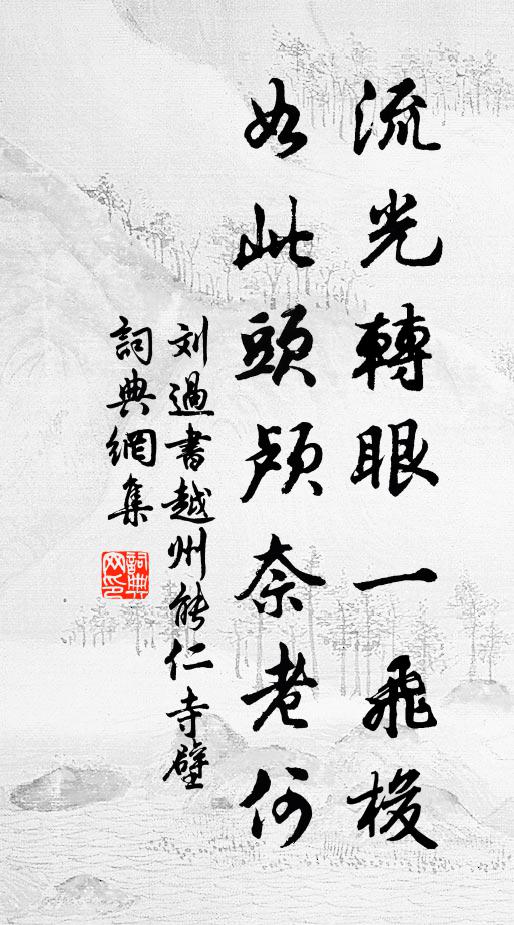 流光轉眼一飛梭
如此頭顱奈老何
刘過書越州能仁寺壁
詞典網集
詞典
网印